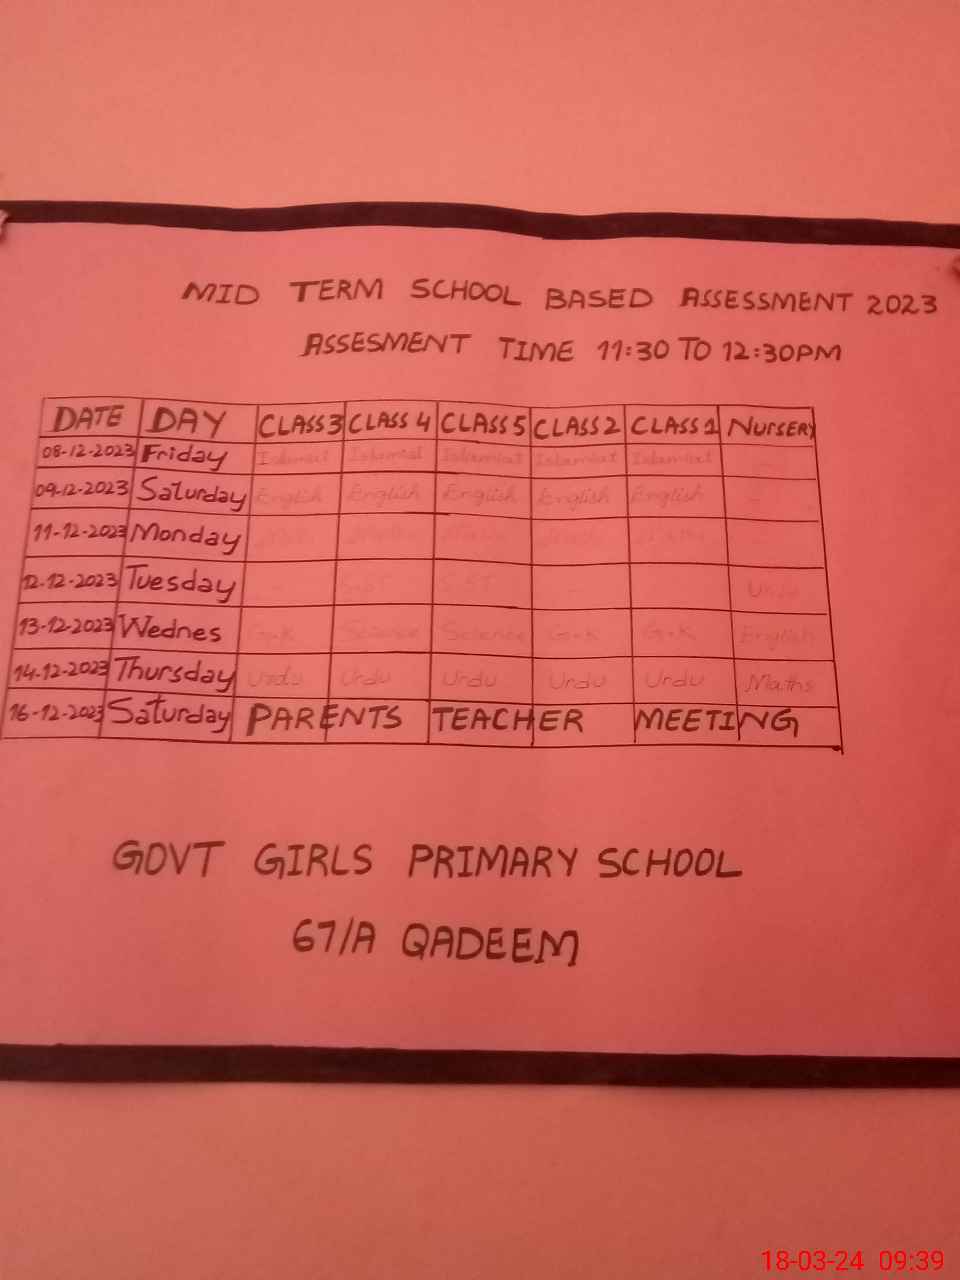 MID TERM SCHOOL BASED ASSESSMENT 2023
ASSESMENT TIME 11:30 TO 12:30PM
DATE DAY CLASS 3 CLASS 4 CLASS 5 CLASS 2 CLASS 1 NURSERY
08-12-2023 Friday Islamiat Islamiat Islamiat Islamiat Islamiat
09-12-2023 Saturday English English English English English
11-12-2023 Monday
12-12-2023 Tuesday - S.ST S.ST - Urdu
13-12-2023 Wednes G.K Science Science G.K G.K English
14-12-2023 Thursday Urdu Urdu Urdu Urdu Urdu Maths
16-12-2023 Saturday PARENTS TEACHER MEETING
GOVT GIRLS PRIMARY SCHOOL
67/A QADEEM
18-03-24 09:39